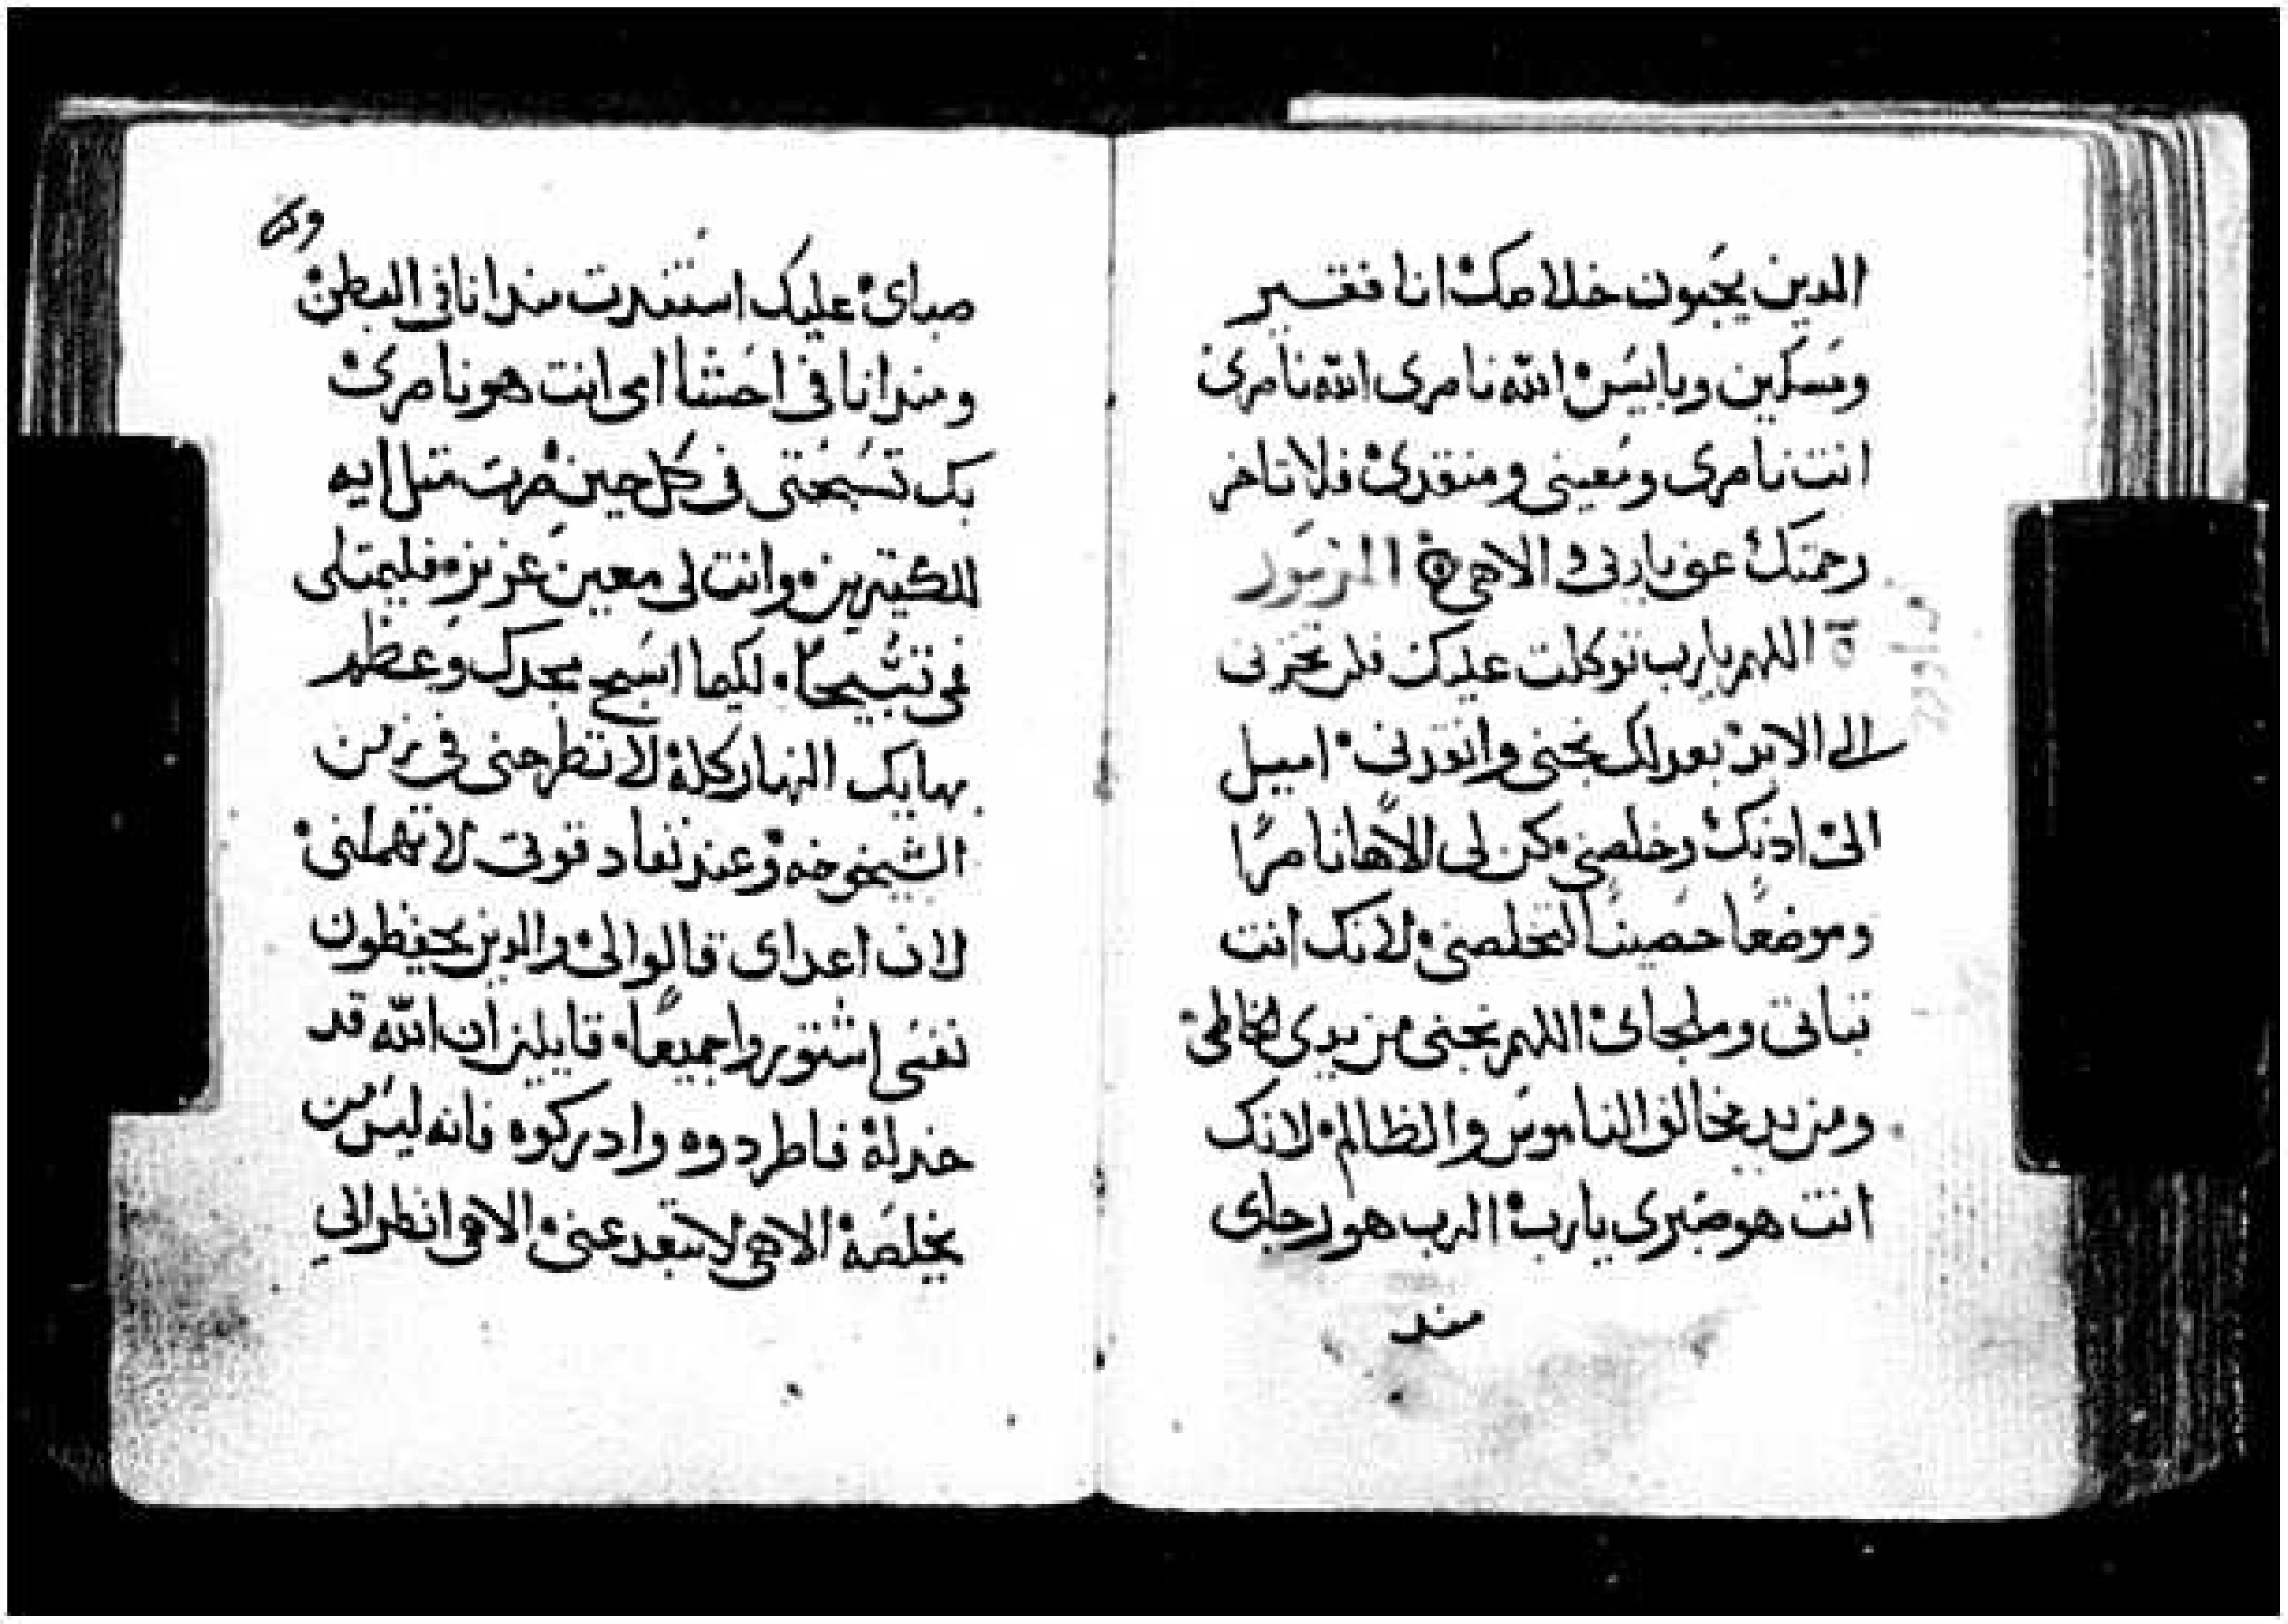 الدين يحبون خلاصك انا فقير
ومسكين وبايس الله ناصرى الله ناصرى
انت ناصرى ومعينى ومنقدى فلا تاخر
رحمتك عنى ياربى والاهى المزمور
اللهم يارب توكلت عليك فلن تخزنى
الى الابد بعدلك نجنى وانقدنى اميل
الى ادنك وخلصنى كن لى الاها ناصرًا
وموضعًا حصينًا لتخلصنى لانك انت
تباتى وملجاى اللهم نجنى من يدى الخاطى
ومن يد مخالف الناموس والظالم لانك
انت هو صبرى يارب الرب هو رجاى
مند
صباى عليك استندت مند انا فى البطن
ومند انا فى احشا امى انت هو ناصرى
بك تسبحتى فى كل حين صرت متل ايه
للكتيرين وانت لى معين عزيز فليمتلى
فمى تسبيحًا لكيما اسبح مجدك وعظم
بهايك النهار كله لا تطرحنى فى زمن
الشيخوخه وعند نفاد قوتى لا تهملنى
لان اعداى قالوا لى والدين يحفظون
نفسى اشتوروا جميعًا قايلين ان الله قد
خدله فاطردوه وادركوه فانه ليس من
يخلصه الاهى لا تبتعد عنى الاهى انظر الى